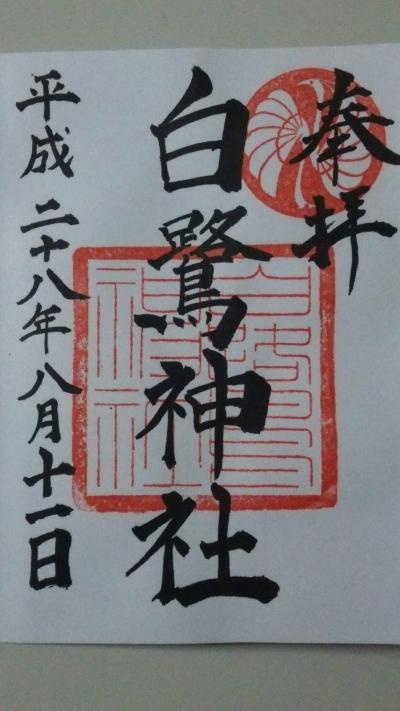 奉拝
白鷺神社
平成二十八年八月十一日
白鷺
神社